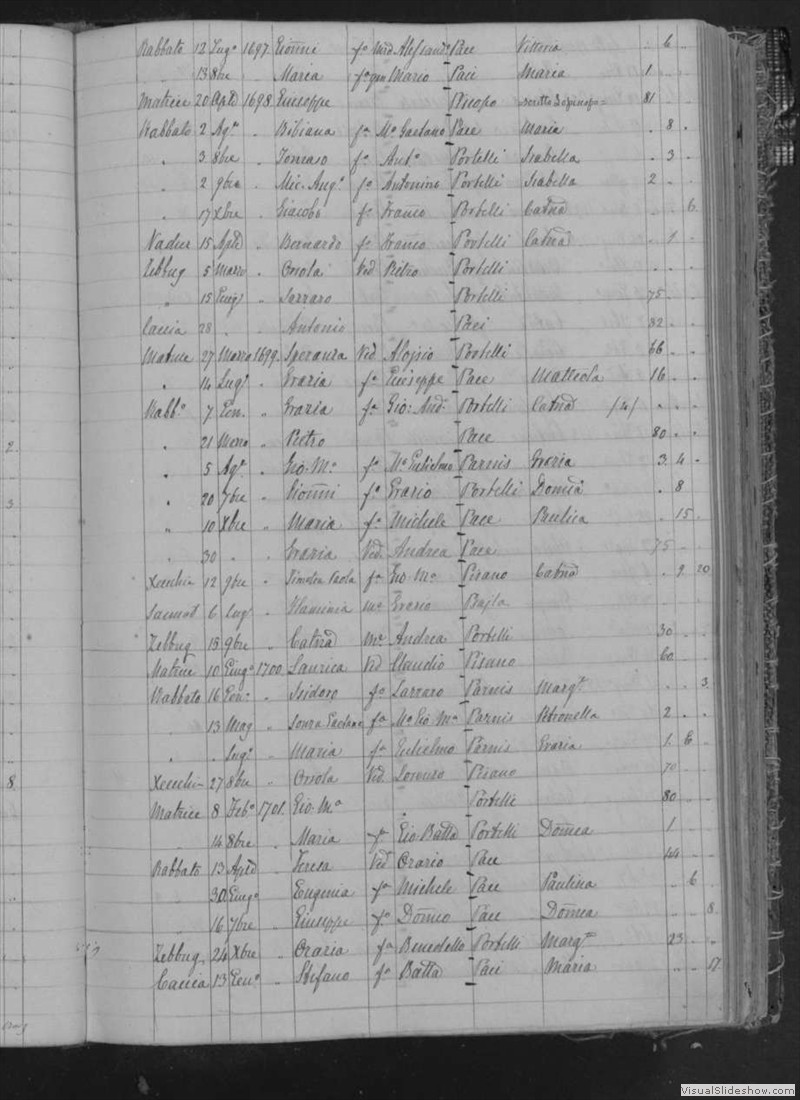 Rabbato 12 Lug° 1697 Gioñni f° Mro Alessandro Pace Vittoria .. 6
" 13 8bre " Maria f° qm Mario Paci Maria 1
Matrice 20 Aple 1698 Giuseppe Pisopo scritto 81
Rabbato 2 Agto " Bibiana fa Mo Gaetano Pace Maria . 8 .
" 3 8bre " Tomaso f° Anto Portelli Isabella . 3 .
2 9bre " Mic. Ang° f° Antonino Portelli Isabella 2 .
" 17 Xbre " Giacobo f° Franco Portelli Catna . . 6
Nadur 15 Aple " Bernardo f° Franco Portelli Catna . 1 .
Zebbug 5 Marzo " Orsola Vid Pietro Portelli . .
" 15 Giug° " Lazzaro Portelli 75 .
Caccia 28 " " Antonio Paci 32 .
Matrice 27 Marzo 1699 Speranza Vid Aloysio Portelli 66 .
" 14 Lug° " Grazia fa Giuseppe Pace Matteola 16 .
Rabbo 7 Gen. " Grazia fa Gio: And: Portelli Catna /4/ . .
" 21 Marzo " Pietro Pace 80 .
" 5 Agto " Gio. Ma f° Mo Gulielmo Parnis Grazia 3. 4 .
" 20 7bre " Gioñni f° Grazio Portelli Domca . 8
" 10 Xbre " Maria fa Michele Pace Paulica . 15
" 30 " " Grazia Vid. Andrea Pace 75 .
Xeuchia 12 9bre " Timotea Paola fa Gio. Ma Pisano Catna . 9. 20
Sannat 6 Lug° " Flaminia Me Grazio Bajla
Zebbug 18 9bre " Catna Me Andrea Portelli 30 .
Matrice 10 Giug° 1700 Laurica Vid Claudio Pisano 60 .
Rabbato 16 Gen° " Isidoro f° Lazzaro Parnis Margta . . 3
13 Mag " Gaetana fa Mo Gio Ma Parnis Petronella 2 . .
" Lug° " Maria fa Gulielmo Parnis Grazia 1. 6
Xeuchia 27 8bre " Orsola Vid. Lorenzo Pisano 70
Matrice 8 Feb° 1701. Gio. Ma Portelli 80 .
" 14 8bre " Maria fa Gio Batta Portelli Domca 1
Rabbato 13 Aple " Teresa Vid Orazio Pace 44
30 Giug° " Eugenia fa Michele Pace Paulica . 6
" 16 7bre " Giuseppe f° Domco Pace Domca . 8
Zebbug 24 Xbre " Grazia fa Benedetto Portelli Margta 23 .
Caccia 13 Gen° " Stefano f° Batta Paci Maria . . 17
2
3
8
VisualSlideshow.com